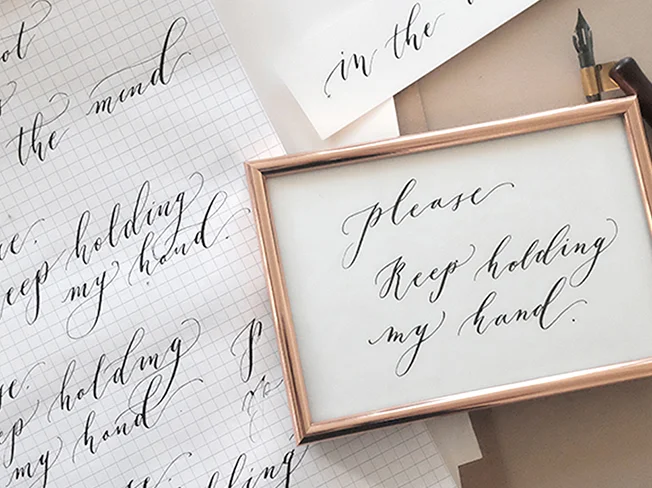 the mind
keep holding
my hand.
keep holding
my hand
holding
in the
please
keep holding
my hand.